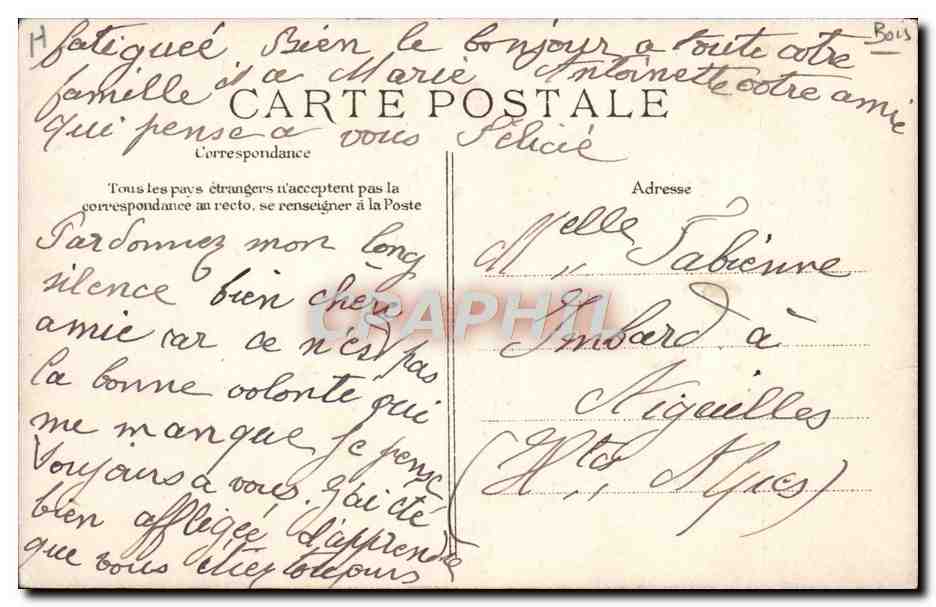 H
Bois
fatigueé Bien le bonjour a toute votre
famille et a Marie Antoinette votre amie
CARTE POSTALE
qui pense a vous Félicié
Correspondance
Tous les pays étrangers n'acceptent pas la
correspondance au recto, se renseigner à la Poste
Pardonnez mon long
silence bien chère
amie car ce n'est pas
la bonne volonté qui
me manque Je pense
toujours a vous. J'ai été
bien affligée d'apprendre
que vous étiez toujours
Adresse
Melle Fabienne
Imbard à
Aiguilles
(Htes Alpes)
CRAPHIL